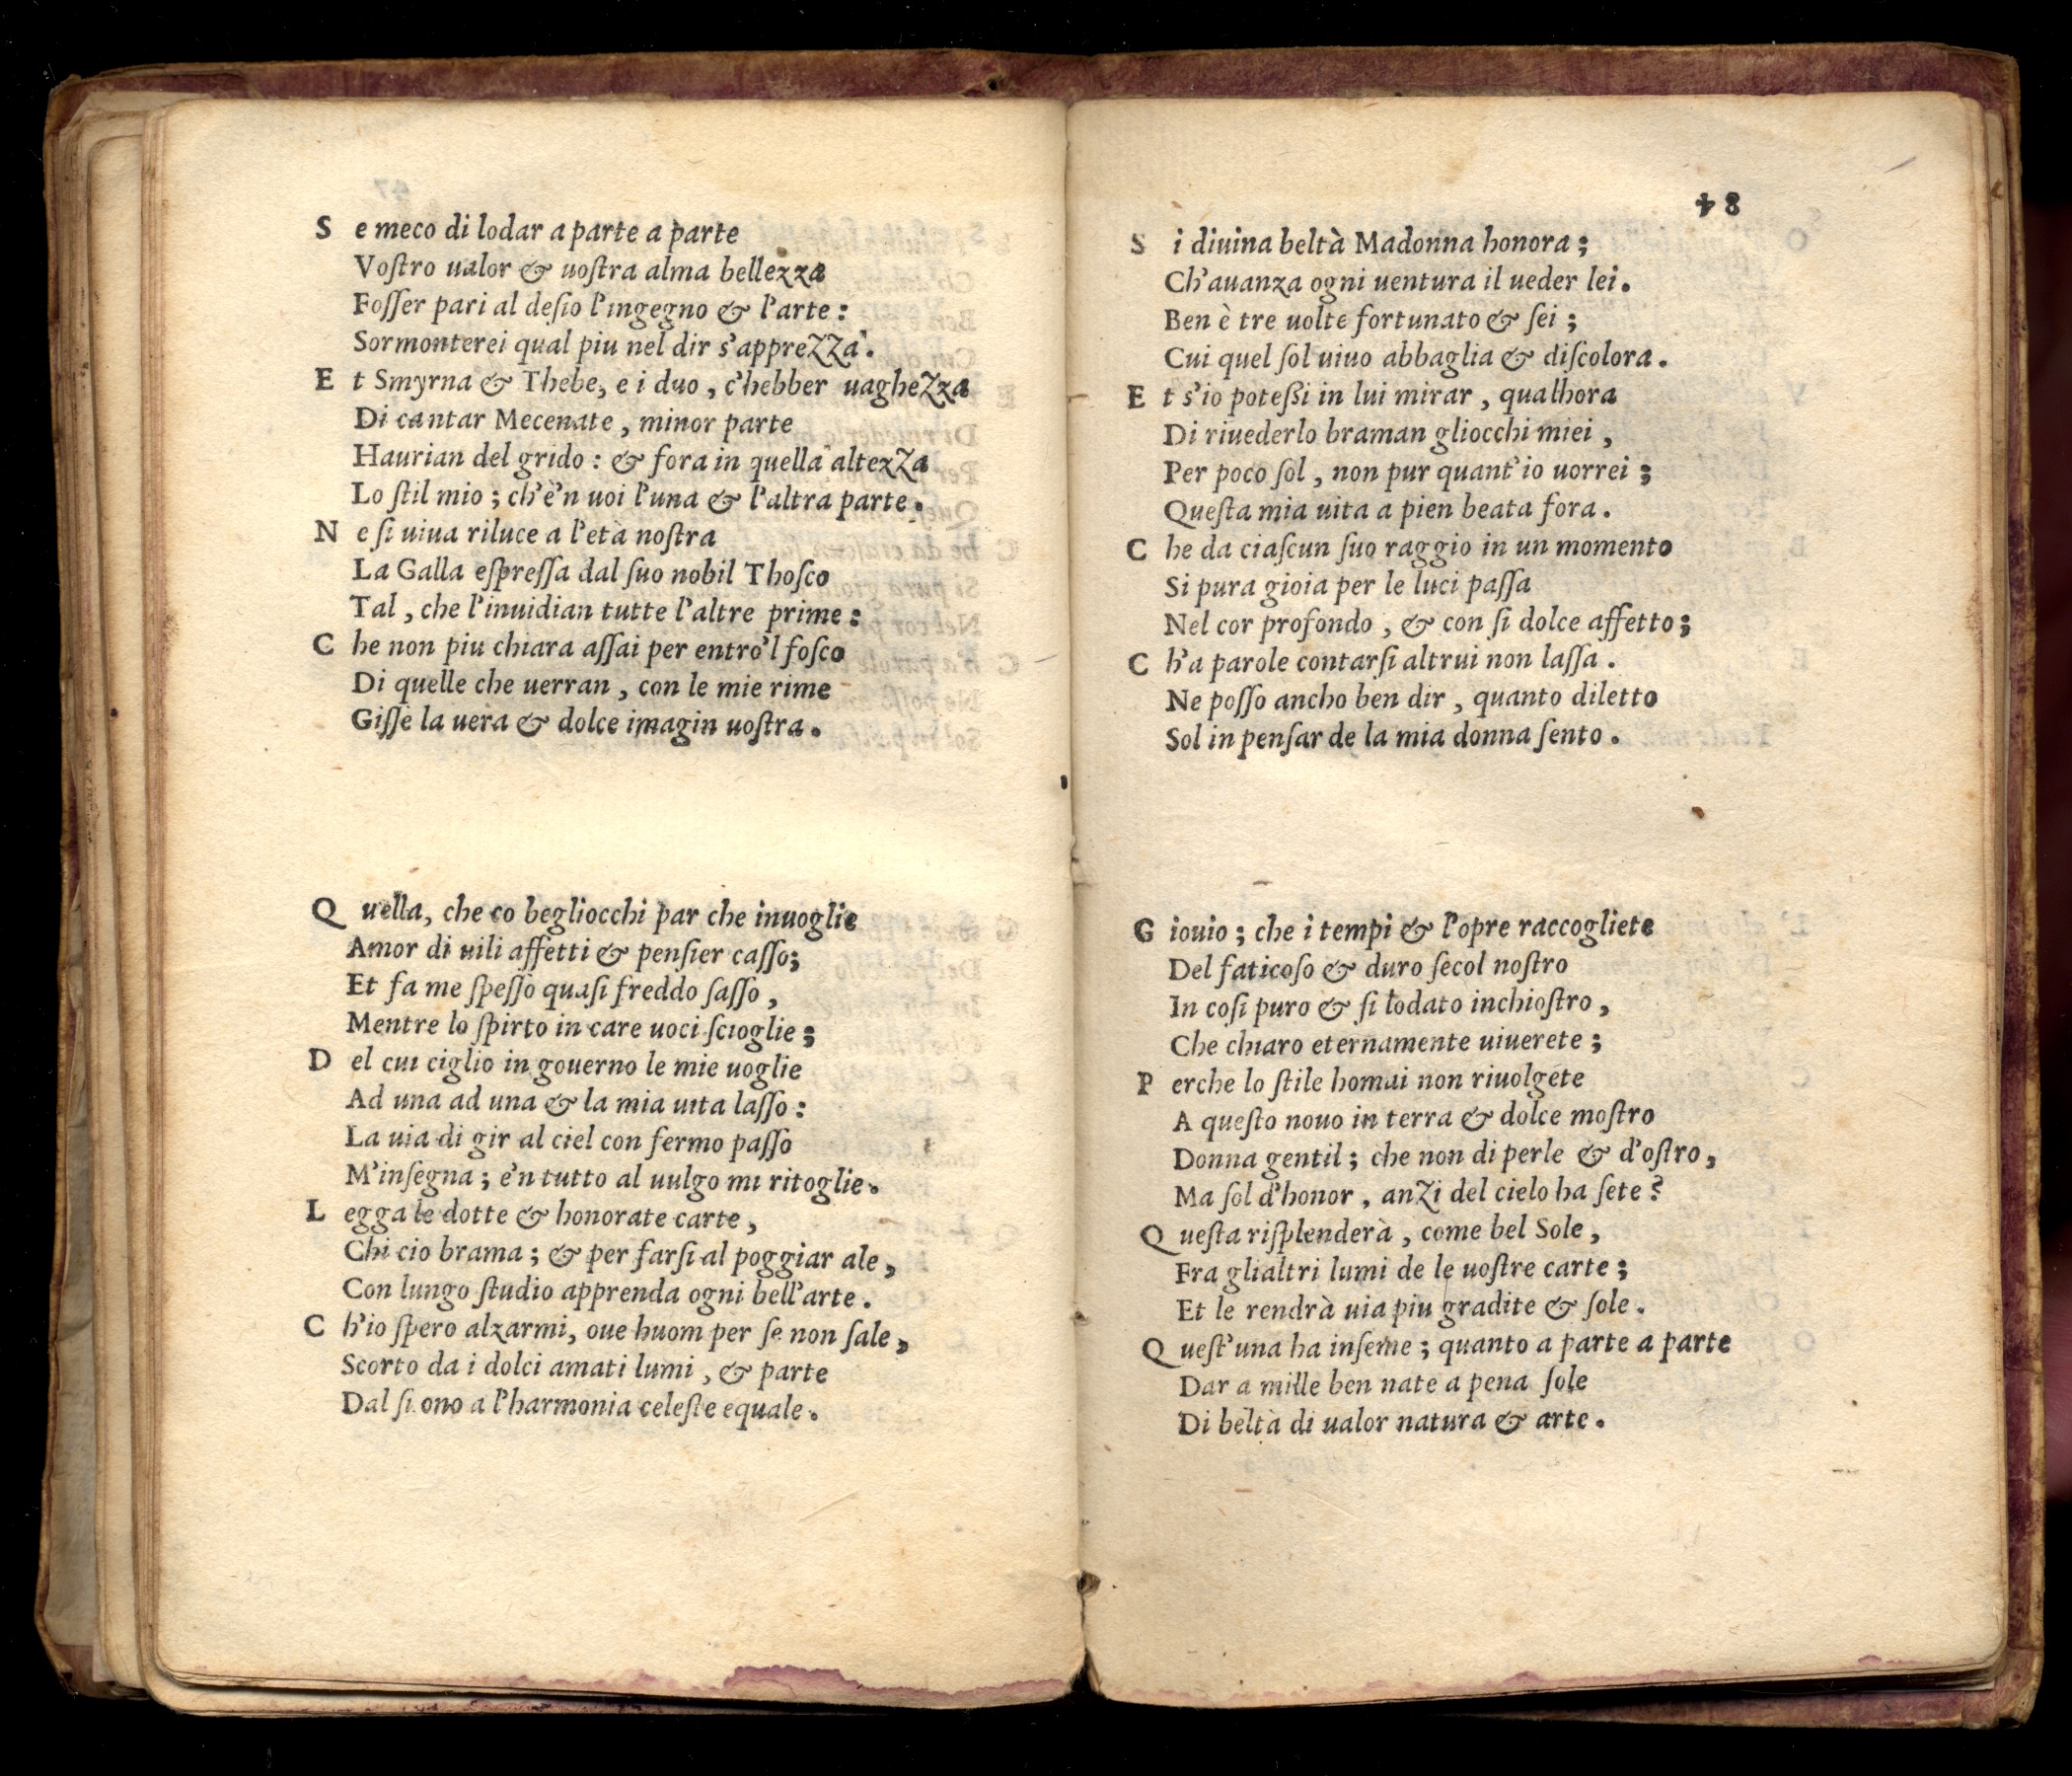 S e meco di lodar a parte a parte
Voſtro ualor & uoſtra alma bellezza
Foſſer pari al deſio l'ingegno & l'arte:
Sormonterei qual piu nel dir s'apprezza.
E t Smyrna & Thebe, e i duo, c'hebber uaghezza
Di cantar Mecenate, minor parte
Haurian del grido: & fora in quella altezza
Lo ſtil mio; ch'è'n uoi l'una & l'altra parte.
N e ſi uiua riluce a l'età noſtra
La Galla eſpreſſa dal ſuo nobil Thoſco
Tal, che l'inuidian tutte l'altre prime:
C he non piu chiara aſſai per entro'l foſco
Di quelle che uerran, con le mie rime
Giſſe la uera & dolce imagin uoſtra.
Q uella, che co begliocchi par che inuoglie
Amor di uili affetti & penſier caſſo;
Et fa me ſpeſſo quaſi freddo ſaſſo,
Mentre lo ſpirto in care uoci ſcioglie;
D el cui ciglio in gouerno le mie uoglie
Ad una ad una & la mia uita laſſo:
La uia di gir al ciel con fermo paſſo
M'inſegna; e'n tutto al uulgo mi ritoglie.
L egga le dotte & honorate carte,
Chi cio brama; & per farſi al poggiar ale,
Con lungo ſtudio apprenda ogni bell'arte.
C h'io ſpero alzarmi, oue huom per ſe non ſale,
Scorto da i dolci amati lumi, & parte
Dal ſuono a l'harmonia celeſte equale.
48
S i diuina beltà Madonna honora;
Ch'auanza ogni uentura il ueder lei.
Ben è tre uolte fortunato & ſei;
Cui quel ſol uiuo abbaglia & diſcolora.
E t s'io poteſſi in lui mirar, qualhora
Di riuederlo braman gliocchi miei,
Per poco ſol, non pur quant'io uorrei;
Queſta mia uita a pien beata fora.
C he da ciaſcun ſuo raggio in un momento
Si pura gioia per le luci paſſa
Nel cor profondo, & con ſi dolce affetto;
C h'a parole contarſi altrui non laſſa.
Ne poſſo ancho ben dir, quanto diletto
Sol in penſar de la mia donna ſento.
G iouio; che i tempi & l'opre raccogliete
Del faticoſo & duro ſecol noſtro
In coſi puro & ſi lodato inchioſtro,
Che chiaro eternamente uiuerete;
P erche lo ſtile homai non riuolgete
A queſto nouo in terra & dolce moſtro
Donna gentil; che non di perle & d'oſtro,
Ma ſol d'honor, anzi del cielo ha ſete?
Q ueſta riſplenderà, come bel Sole,
Fra glialtri lumi de le uoſtre carte;
Et le rendrà uia piu gradite & ſole.
Q ueſt'una ha inſeme; quanto a parte a parte
Dar a mille ben nate a pena ſole
Di beltà di ualor natura & arte.